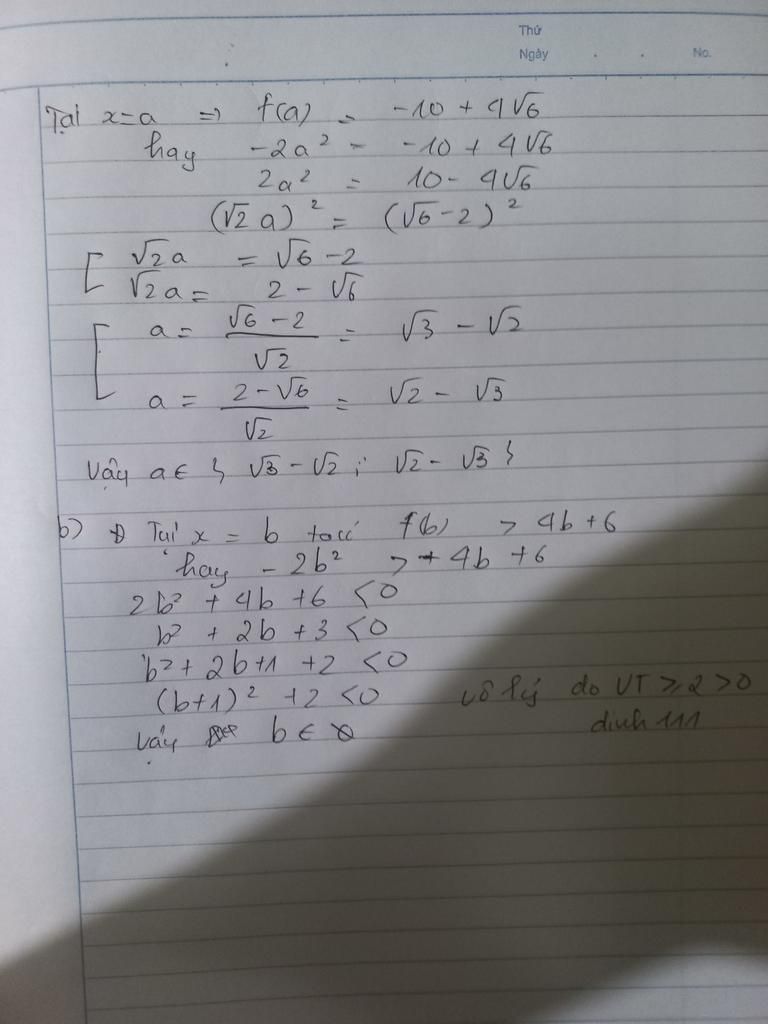 Thứ
Ngày . . No.
Tại x=a => f(a) = -10 + 4√6
hay -2a² = -10 + 4√6
2a² = 10 - 4√6
(√2 a)² = (√6 - 2)²
[ √2a = √6 - 2
√2a = 2 - √6
[ a = (√6 - 2)/√2 = √3 - √2
a = (2 - √6)/√2 = √2 - √3
Vậy a ∈ { √3 - √2 ; √2 - √3 }
b) Tại x = b ta có f(b) > 4b + 6
hay - 2b² > 4b + 6
2b² + 4b + 6 < 0
b² + 2b + 3 < 0
b² + 2b + 1 + 2 < 0
(b+1)² + 2 < 0 vô lý do VT ≥ 2 > 0
Vậy b ∈ ∅